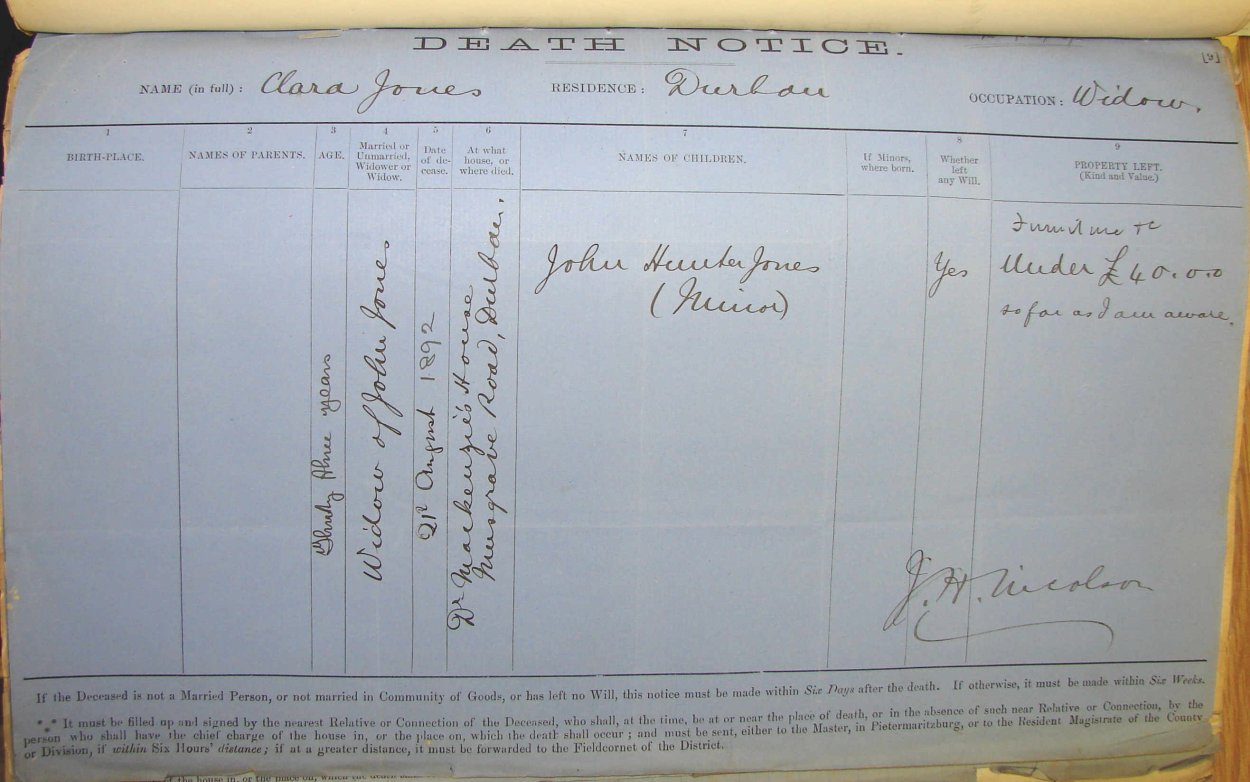 DEATH NOTICE.
[9]
NAME (in full): Clara Jones RESIDENCE: Durban OCCUPATION: Widow.
1 2 3 4 5 6 7 8 9
BIRTH-PLACE.
NAMES OF PARENTS.
AGE.
Married or
Unmarried,
Widower or
Widow.
Date
of de-
cease.
At what
house, or
where died.
NAMES OF CHILDREN.
If Minors,
where born.
Whether
left
any Will.
PROPERTY LEFT.
(Kind and Value.)
Thirty three years
Widow of John Jones
21st August 1892
Dr Mackenzie's House
Musgrave Road, Durban.
John Hunter Jones
(Minor)
Yes
Furniture &c
Under £40.0.0
so far as I am aware.
J. H. Nicolson
If the Deceased is not a Married Person, or not married in Community of Goods, or has left no Will, this notice must be made within Six Days after the death. If otherwise, it must be made within Six Weeks.
*.* It must be filled up and signed by the nearest Relative or Connection of the Deceased, who shall, at the time, be at or near the place of death, or in the absence of such near Relative or Connection, by the
person who shall have the chief charge of the house in, or the place on, which the death shall occur; and must be sent, either to the Master, in Pietermaritzburg, or to the Resident Magistrate of the County
or Division, if within Six Hours' distance; if at a greater distance, it must be forwarded to the Fieldcornet of the District.